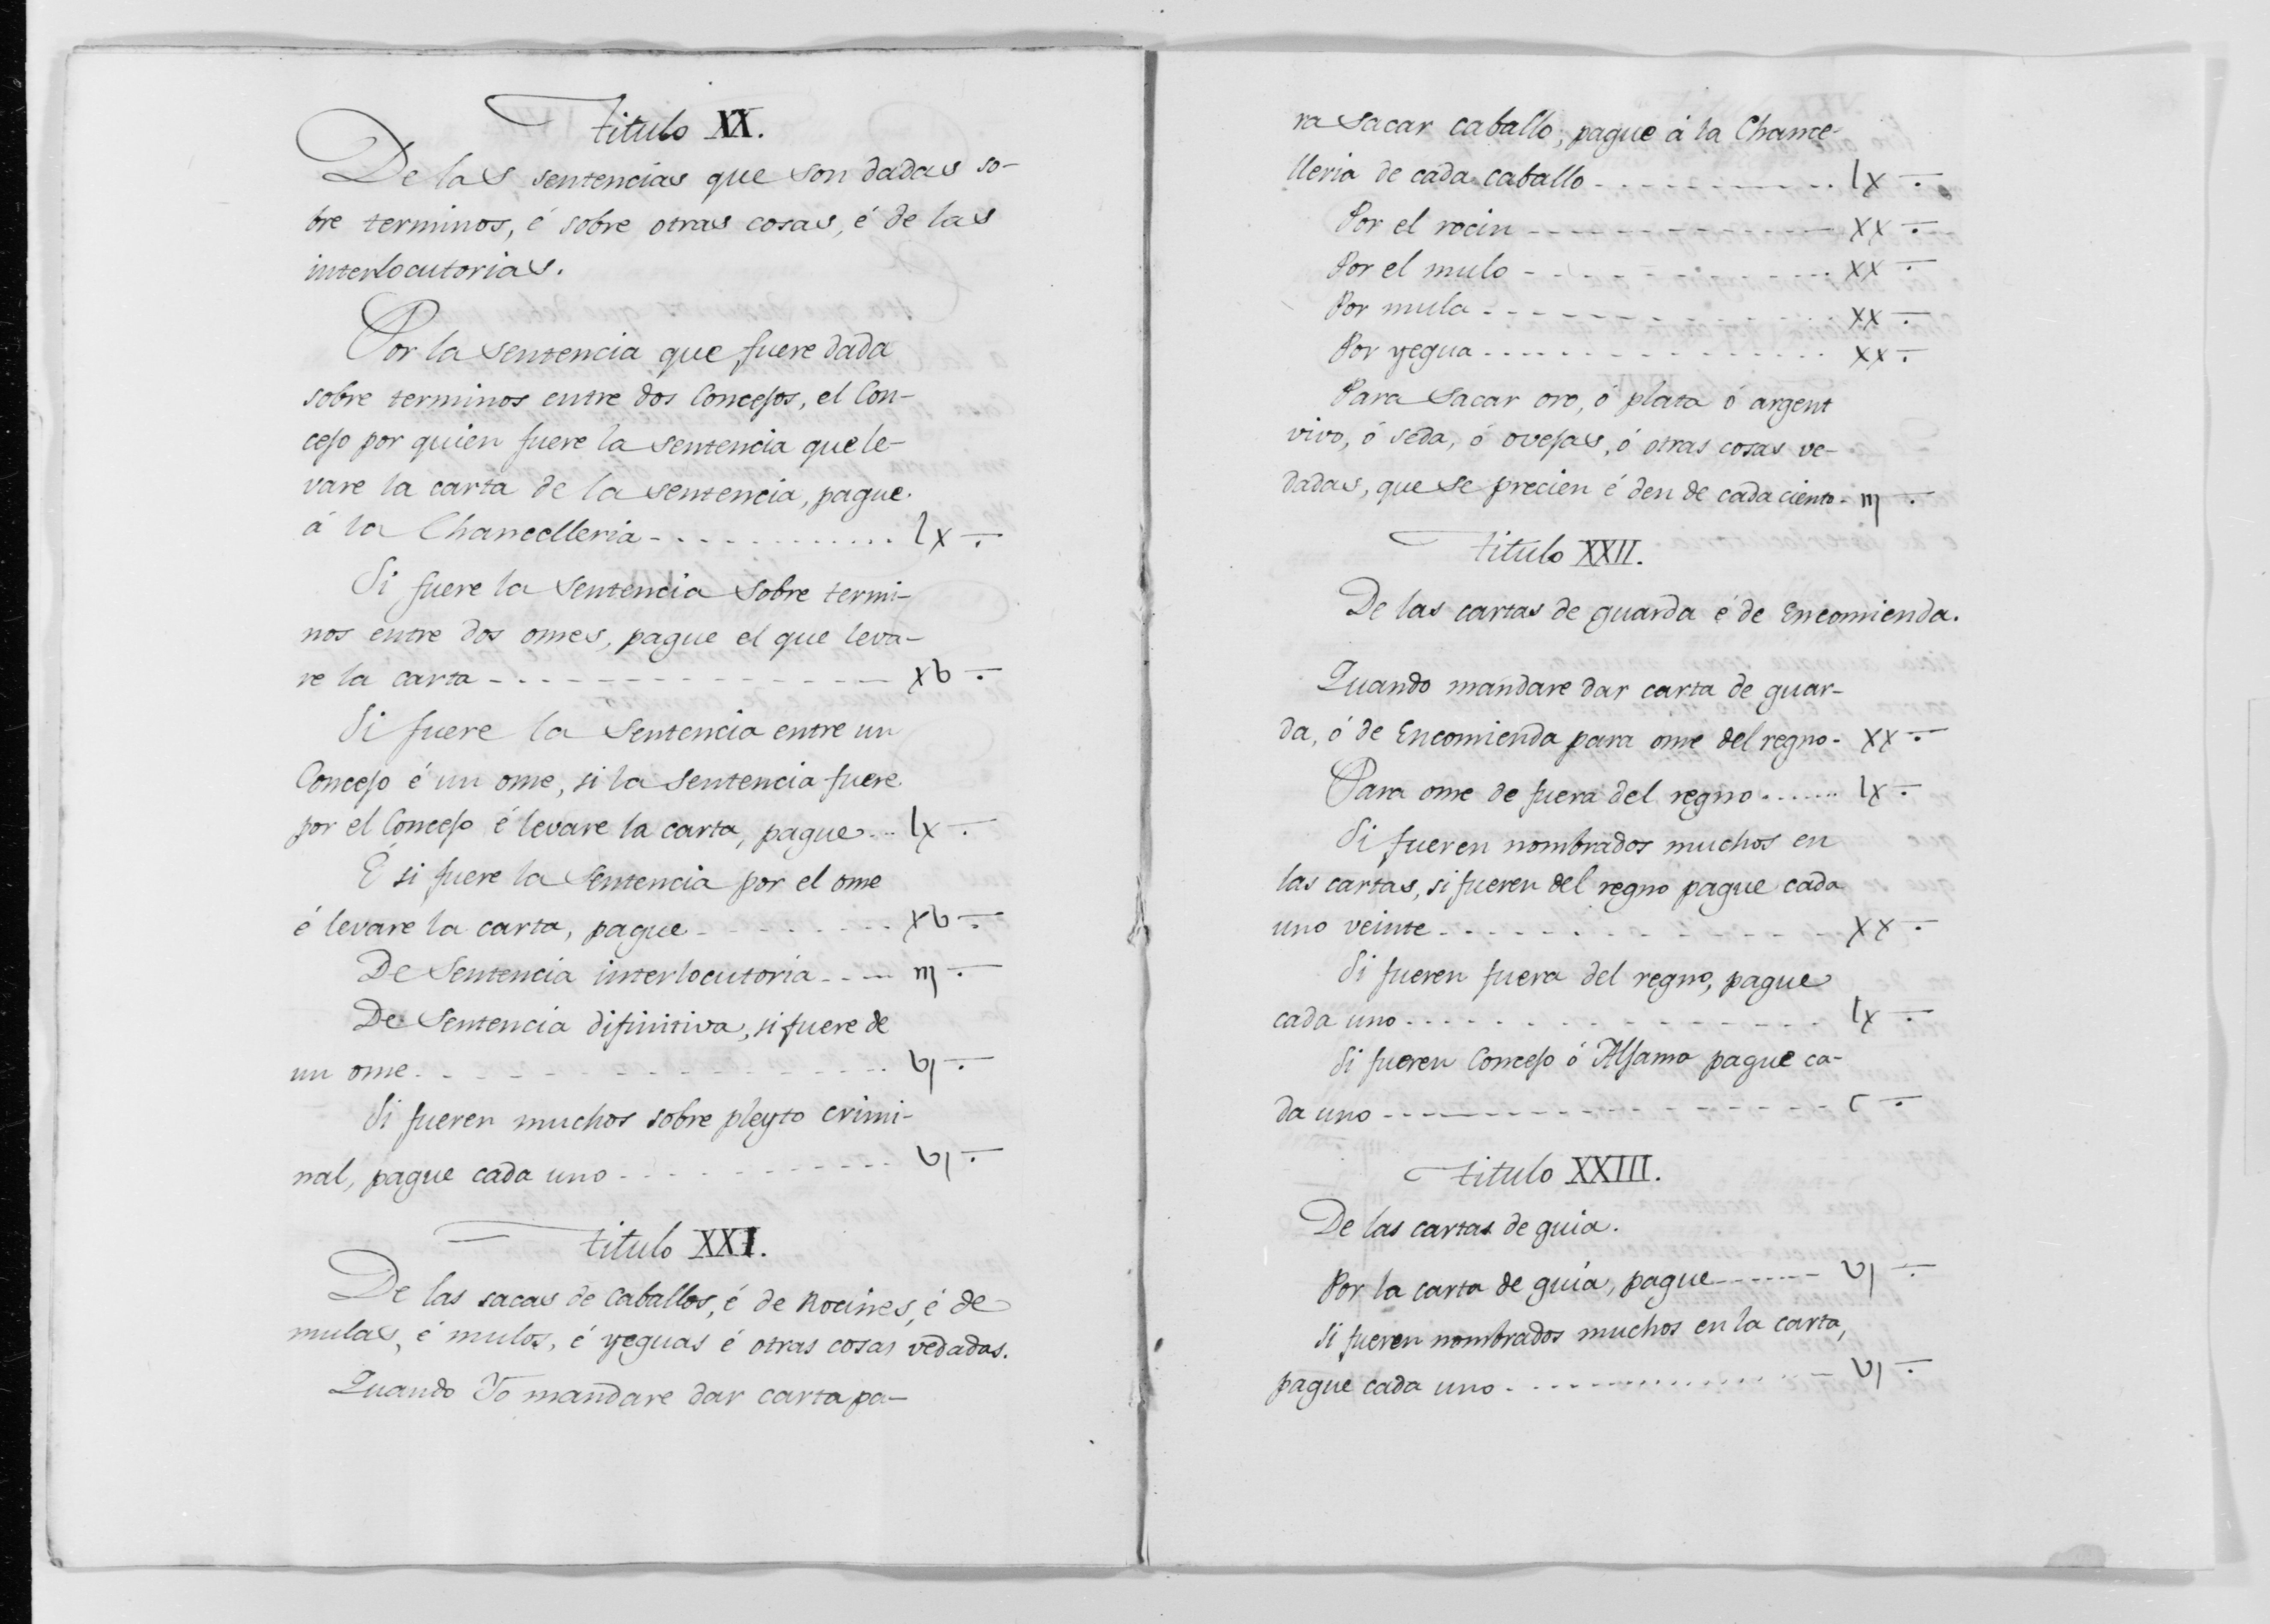 Titulo XX.
De las sentencias que son dadas so-
bre terminos, é sobre otras cosas, é de las
interlocutorias.
Por la sentencia que fuere dada
sobre terminos entre dos Concejos, el Con-
cejo por quien fuere la sentencia que le-
vare la carta de la sentencia, pague
á la Chancelleria - - - - - - - - - - lx
Si fuere la sentencia sobre termi-
nos entre dos omes, pague el que leva-
re la carta - - - - - - - - - - - - xb
Si fuere la sentencia entre un
Concejo é un ome, si la sentencia fuere
por el Concejo é levare la carta, pague - - lx
É si fuere la sentencia por el ome
é levare la carta, pague - - - - - - - - xb
De sentencia interlocutoria - - - - iij
De sentencia difinitiva, si fuere de
un ome - - - - - - - - - - - - - - bj
Si fueren muchos sobre pleyto crimi-
nal, pague cada uno - - - - - - - - - bj
Titulo XXI.
De las sacas de Caballos, é de Rocines, é de
mulas, é mulos, é yeguas é otras cosas vedadas.
Quando Yo mandare dar carta pa-
ra sacar caballo, pague á la Chance-
lleria de cada caballo - - - - - - - - - lx
Por el rocin - - - - - - - - - - - - xx
Por el mulo - - - - - - - - - - - - xx
Por mula - - - - - - - - - - - - - xx
Por yegua - - - - - - - - - - - - - xx
Para sacar oro, ó plata ó argent
vivo, ó seda, ó ovejas, ó otras cosas ve-
dadas, que se precien é den de cada ciento - iij
Titulo XXII.
De las cartas de guarda é de Encomienda.
Quando mandare dar carta de guar-
da, ó de Encomienda para ome del regno - xx
Para ome de fuera del regno - - - - - lx
Si fueren nombrados muchos en
las cartas, si fueren del regno pague cada
uno veinte - - - - - - - - - - - - - xx
Si fueren fuera del regno, pague
cada uno - - - - - - - - - - - - - - lx
Si fueren Concejo ó Aljama pague ca-
da uno - - - - - - - - - - - - - - - c
Titulo XXIII.
De las cartas de guia.
Por la carta de guia, pague - - - - - bj
Si fueren nombrados muchos en la carta,
pague cada uno - - - - - - - - - - - - bj